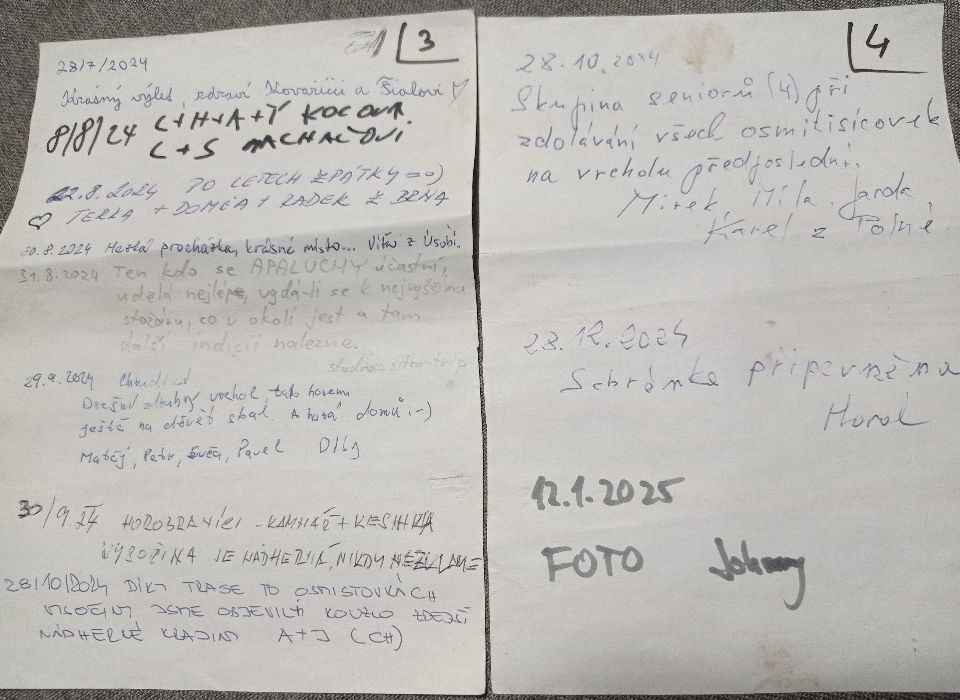 3
28/7/2024
Krásný výlet, zdraví Kovaříčci a Šialovi ♡
8/8/24 L+H+A+T KOCOUR.
L+S MACHAČOVI
22.8.2024 PO LETECH ZPÁTKY =o)
♡ TERKA + DOMČA + RADEK Z BRNA
30.8.2024 Hezká procházka, krásné místo... Víťa z Úsobí.
31.8.2024 Ten kdo se APALUCHY účastní,
udělá nejlépe, vydá-li se k nejvyššímu
stožáru, co v okolí jest a tam
další indicii nalezne.
studna - šifra-trip
29.9.2024
Dnešní druhý vrchol, tak honem
ještě na devět skal. A hurá domů :-)
Matěj, Petr, Pavel
30/9. 24 HOROBRANÍCI - KAMNÁŘ +
VYSOČINA JE NÁDHERNÁ, NIKDY
28/10/2024 DÍKY TRASE PO OSMISTOVKÁCH
VYSOČINY JSME OBJEVILI KOUZLO ZDEJŠÍ
NÁDHERNÉ KRAJINY A+J (CH)
4
28.10.2024
Skupina seniorů (4) při
zdolávání všech osmitisícovek
na vrcholu předposlední.
Mirek Míla Jarda
Karel z Polné.
28.12.2024
Schránka připevněna
Horal
12.1.2025
FOTO Johnny